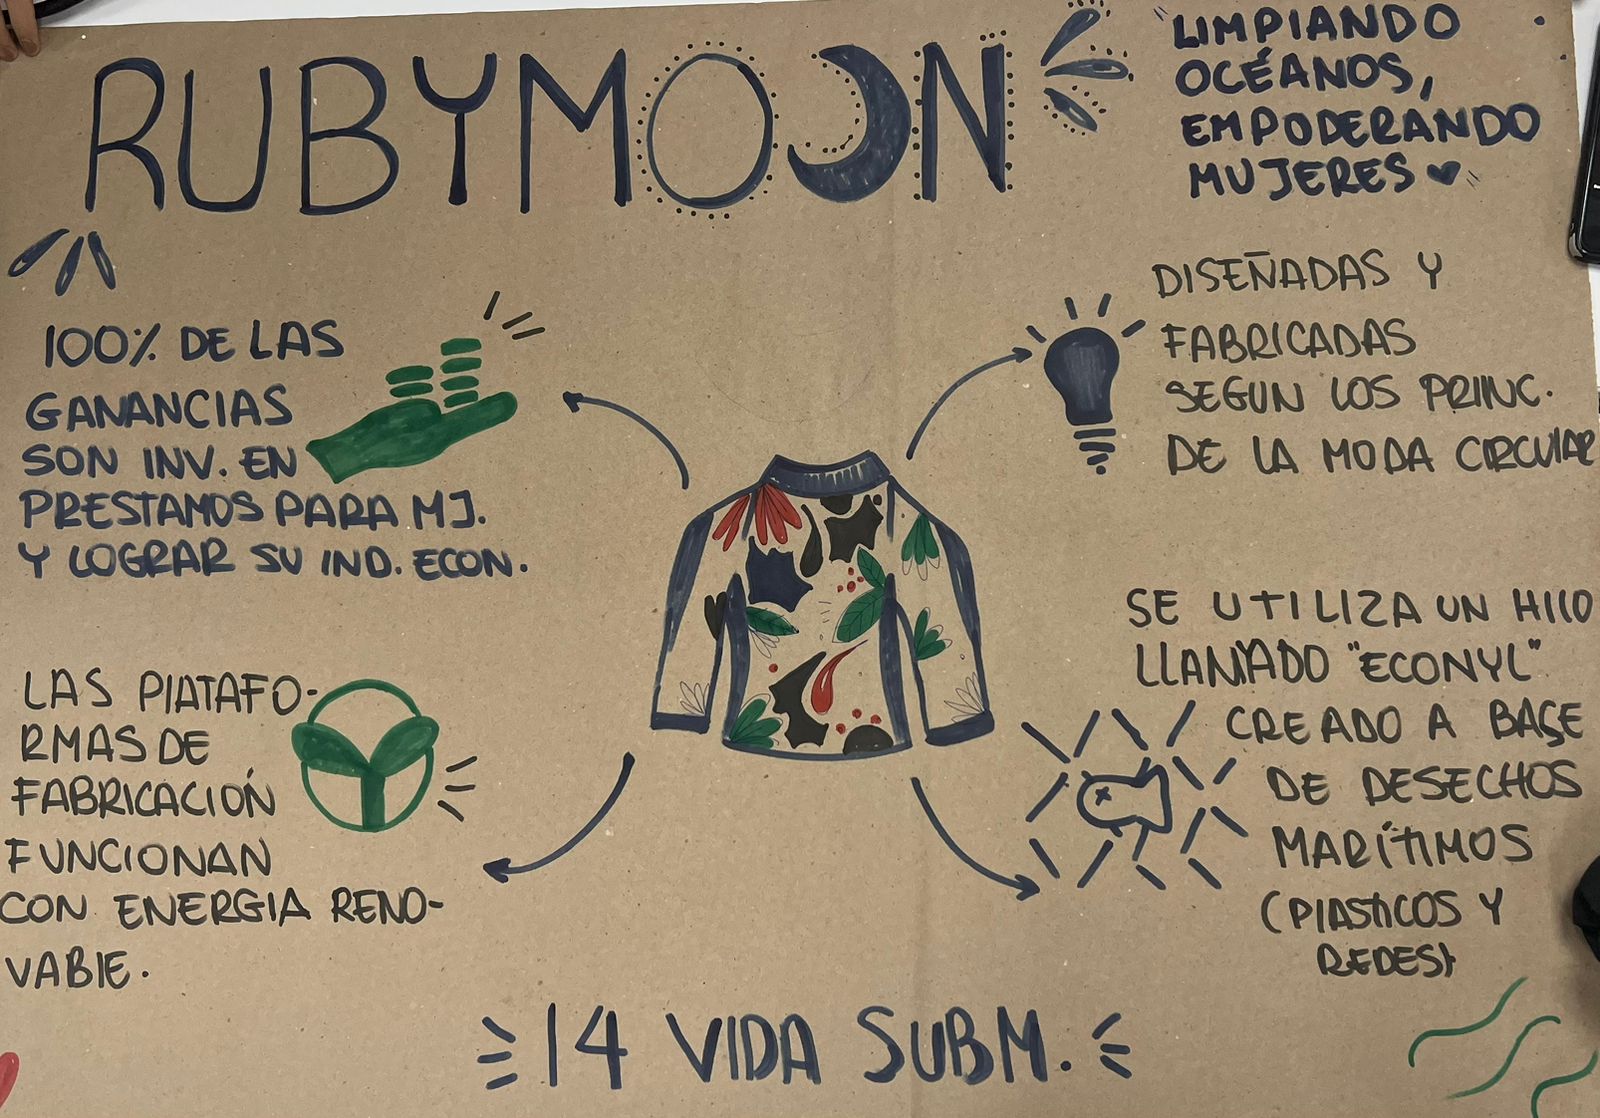 RUBYMOON
"LIMPIANDO
OCÉANOS,
EMPODERANDO
MUJERES"
100% DE LAS
GANANCIAS
SON INV. EN
PRESTAMOS PARA MJ.
Y LOGRAR SU IND. ECON.
DISEÑADAS Y
FABRICADAS
SEGUN LOS PRINC.
DE LA MODA CIRCULAR
LAS PLATAFO-
RMAS DE
FABRICACIÓN
FUNCIONAN
CON ENERGIA RENO-
VABLE.
SE UTILIZA UN HILO
LLAMADO "ECONYL"
CREADO A BASE
DE DESECHOS
MARÍTIMOS
(PLASTICOS Y
REDES)
14 VIDA SUBM.